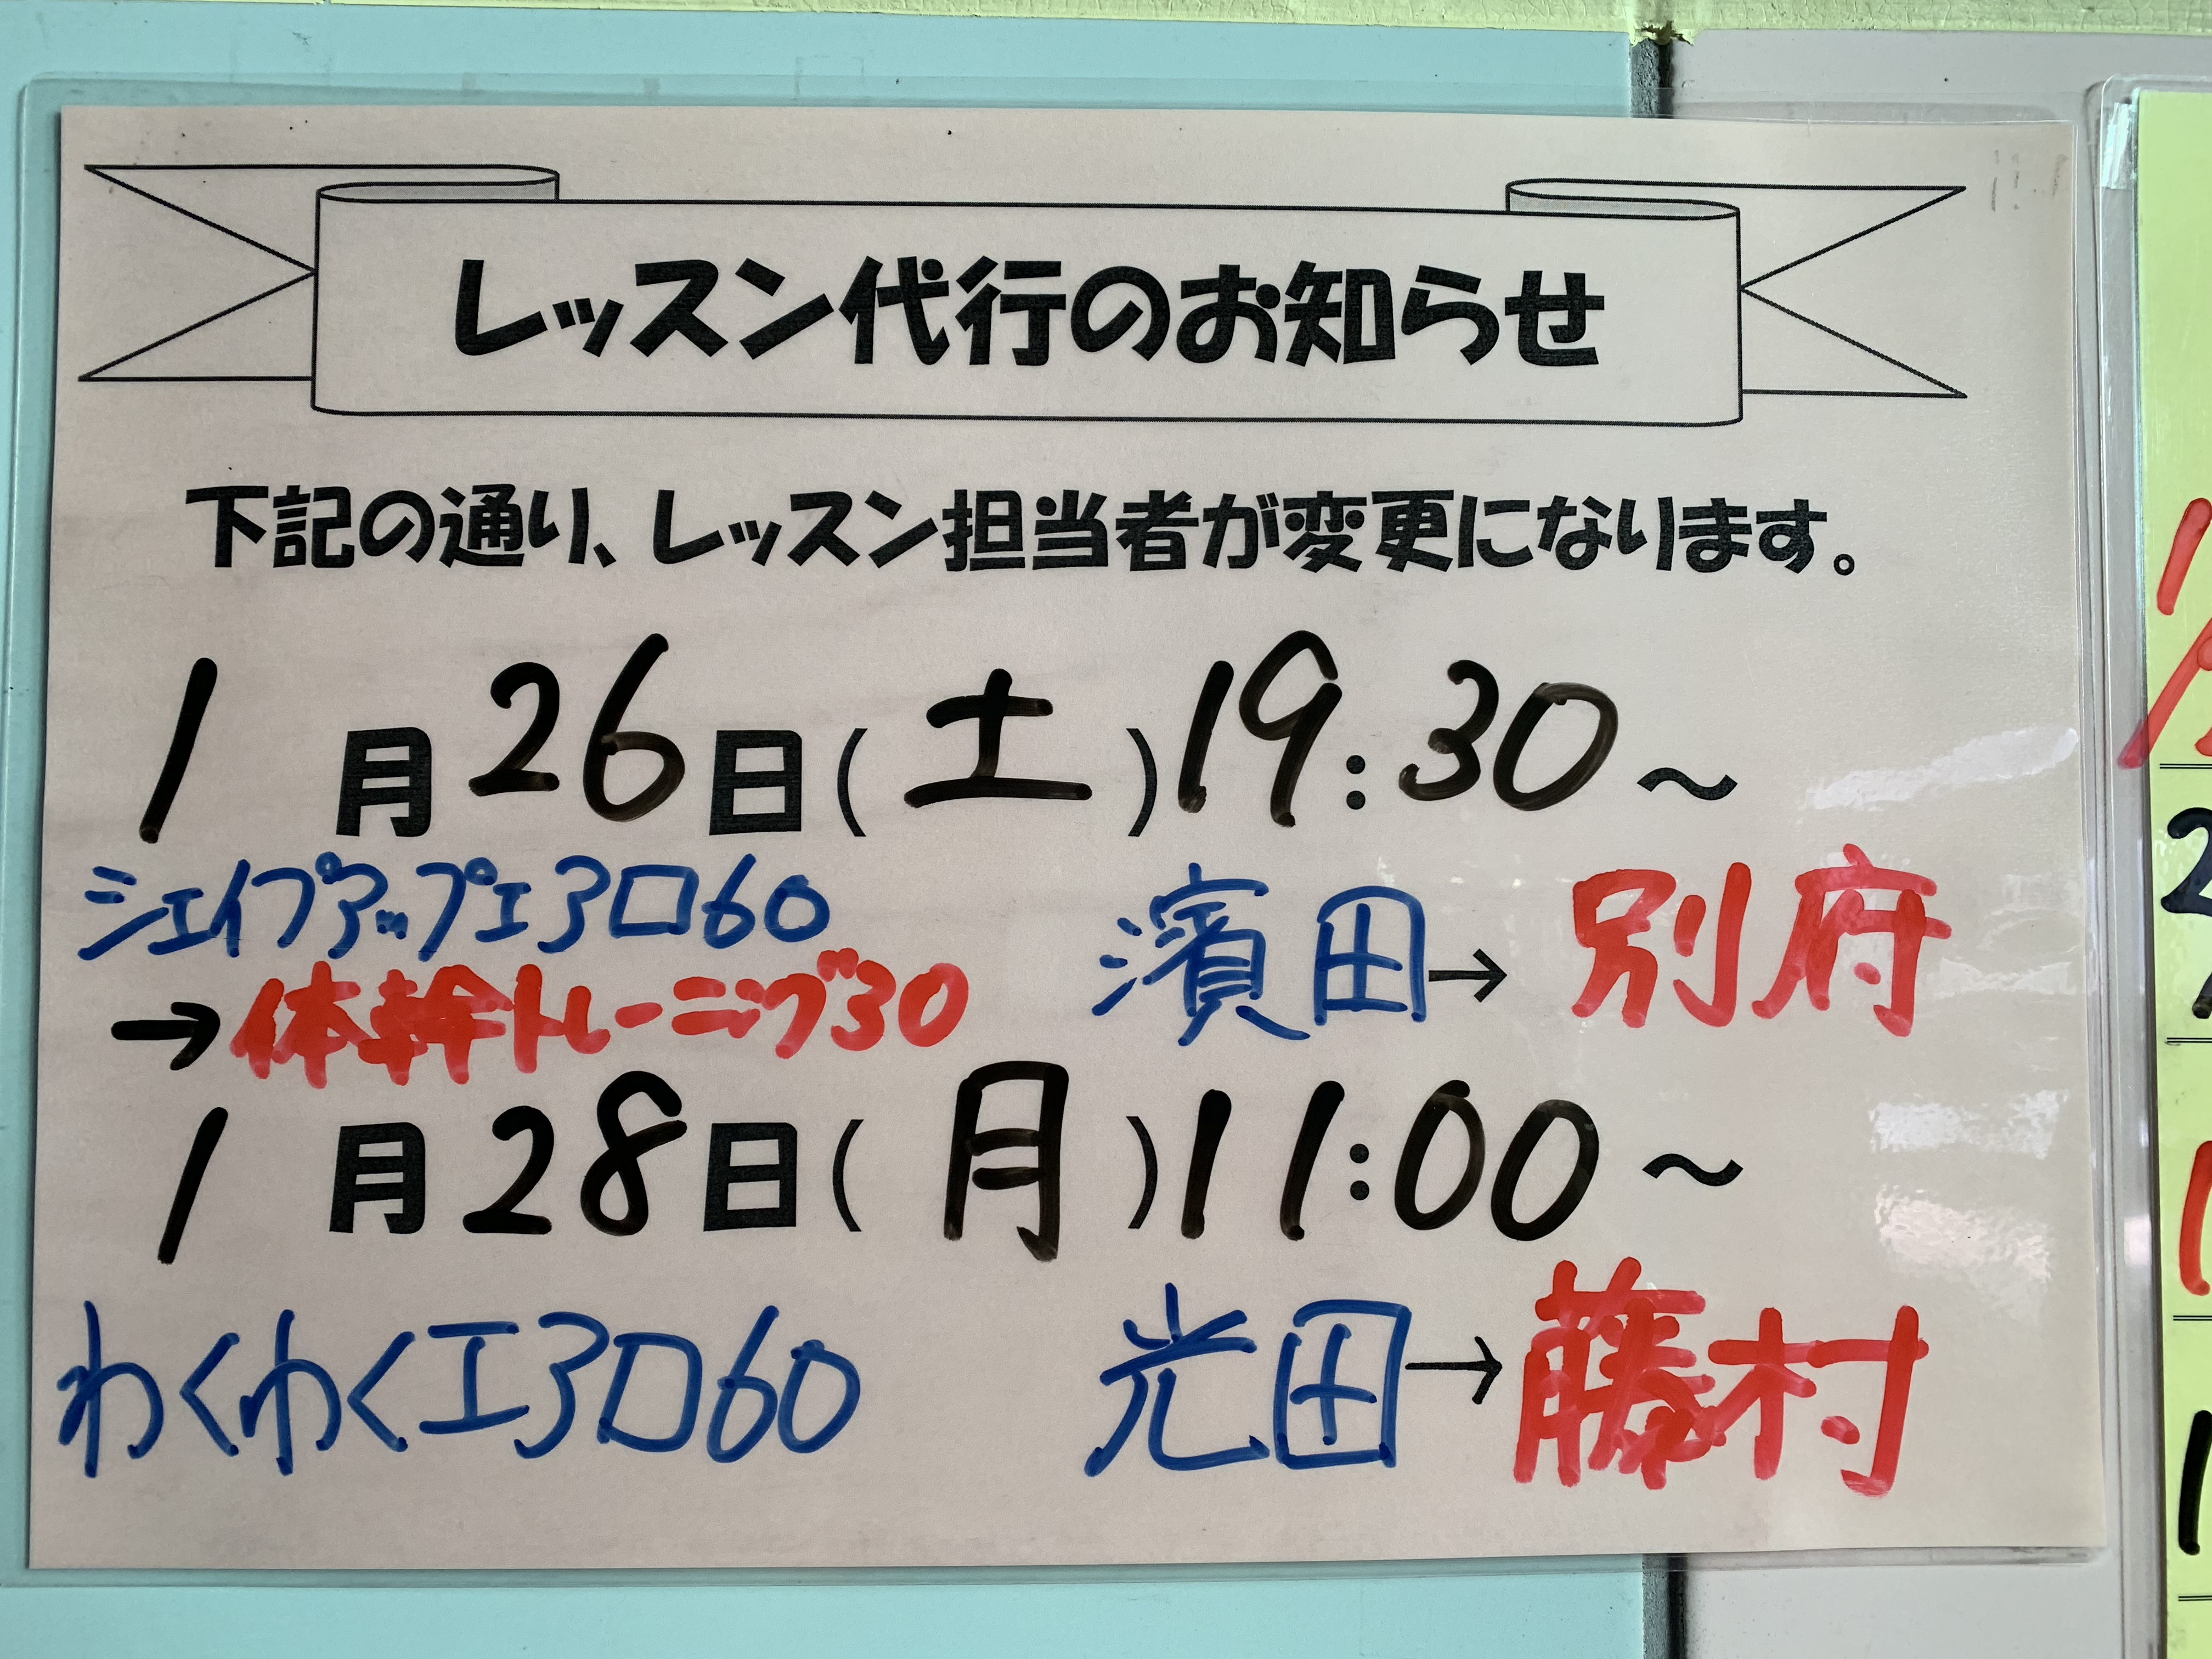 レッスン代行のお知らせ
下記の通り、レッスン担当者が変更になります。
1月26日(土)19:30～
シェイプアップエアロ60
濱田→別府
→体幹トレーニング30
1月28日(月)11:00～
わくわくエアロ60
光田→藤村